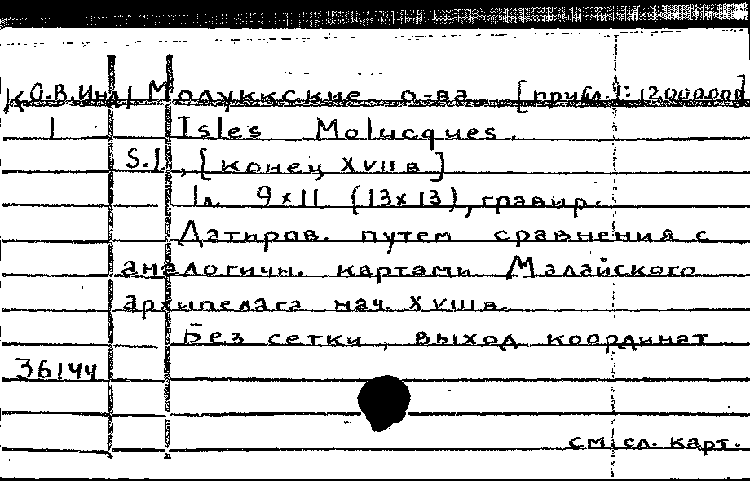 К О.В.Инд/ Молуккские о-ва [прибл. 1:12.000.000]
1 Isles Molucques.
S.l., [конец XVII в]
1 л. 9x11 (13x13), гравир.
Датиров. путем сравнения с
аналогичн. картами Малайского
архипелага нач. XVIII в.
Без сетки, выход координат
36144
см. сл. карт.